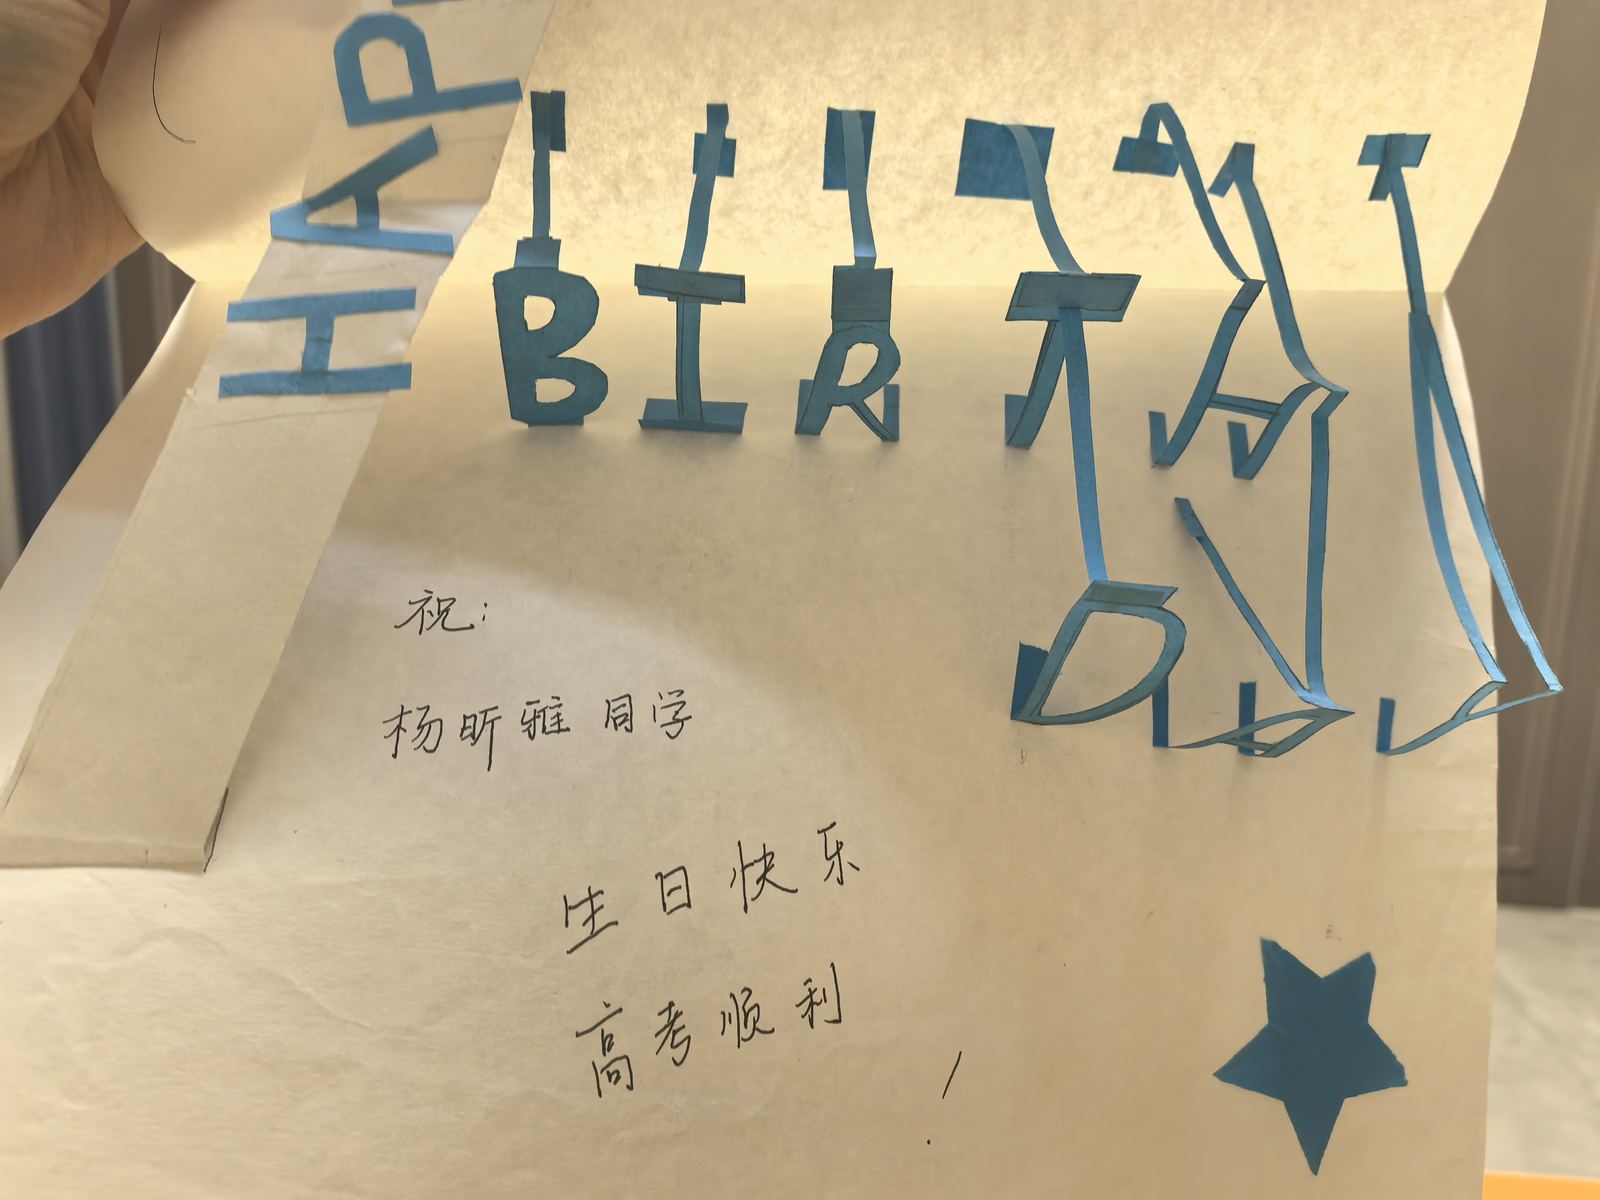 HAP
BIRTH
DAY
祝:
杨昕雅同学
生日快乐
高考顺利!